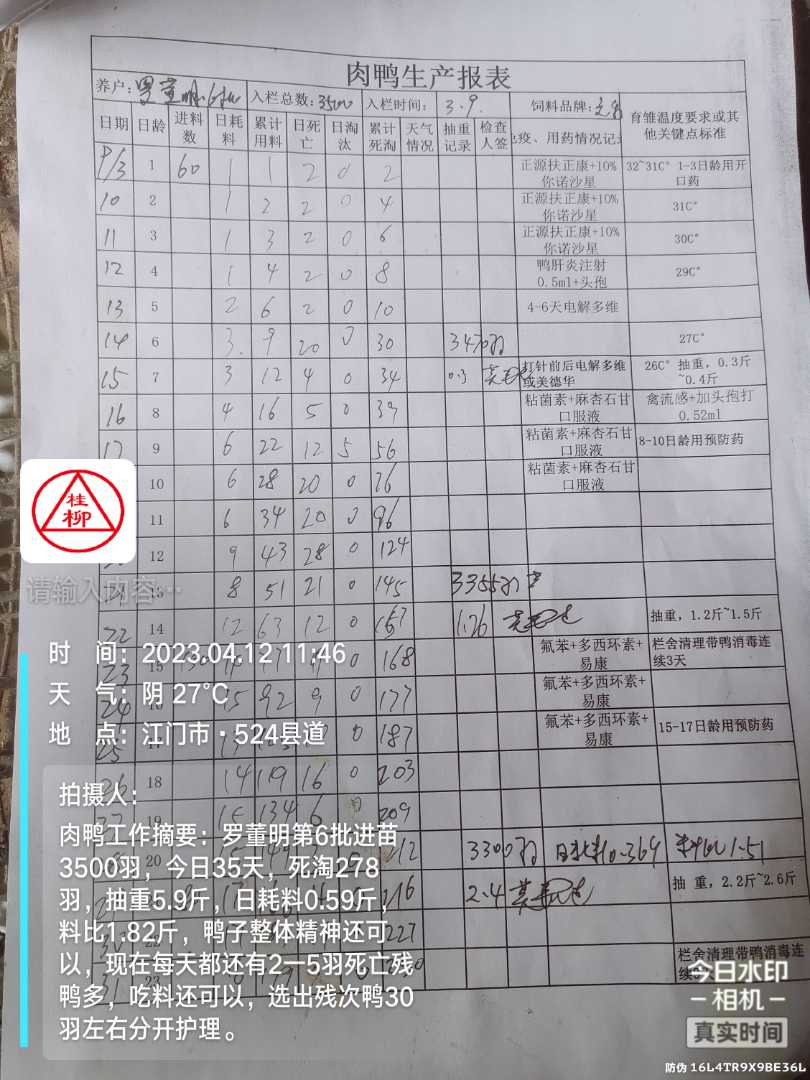 肉鸭生产报表
养户: 罗董明 入栏总数: 3500 入栏时间: 3.9. 饲料品牌:
日期 日龄 进料数 日耗料 累计用料 日死亡 日淘汰 累计死淘 天气情况 抽重记录 检查人签 疫、用药情况记 育雏温度要求或其他关键点标准
9/3 1 60 1 1 2 0 2 正源扶正康+10%你诺沙星 32~31C° 1-3日龄用开口药
10 2 1 2 2 0 4 正源扶正康+10%你诺沙星 31C°
11 3 1 3 2 0 6 正源扶正康+10%你诺沙星 30C°
12 4 1 4 2 0 8 鸭肝炎注射0.5ml+头孢 29C°
13 5 2 6 2 0 10 4-6天电解多维
14 6 3 9 20 0 30 3470羽 27C°
15 7 3 12 4 0 34 0.3 打针前后电解多维或美德华 26C° 抽重，0.3斤~0.4斤
16 8 4 16 5 0 39 粘菌素+麻杏石甘口服液 禽流感+加头孢打0.52ml
17 9 6 22 12 5 56 粘菌素+麻杏石甘口服液 8-10日龄用预防药
10 6 28 20 0 76 粘菌素+麻杏石甘口服液
11 6 34 20 0 96
12 9 43 28 0 124
21 13 8 51 21 0 145 3355羽
22 14 12 63 12 0 157 1.26 抽重，1.2斤~1.5斤
23 15 168 氟苯+多西环素+易康 栏舍清理带鸭消毒连续3天
24 92 9 0 177 氟苯+多西环素+易康
25 0 187 氟苯+多西环素+易康 15-17日龄用预防药
26 18 14 119 16 0 203
27 19 15 134 6 209
20 212 3300羽 日耗料0.369 料比1.51
216 2.4 抽重，2.2斤~2.6斤
227
31 23 栏舍清理带鸭消毒连续
桂柳
请输入内容…
时 间：2023.04.12 11:46
天 气：阴 27℃
地 点：江门市·524县道
拍摄人：
肉鸭工作摘要：罗董明第6批进苗
3500羽，今日35天，死淘278
羽，抽重5.9斤，日耗料0.59斤，
料比1.82斤，鸭子整体精神还可
以，现在每天都还有2—5羽死亡残
鸭多，吃料还可以，选出残次鸭30
羽左右分开护理。
今日水印
相机
真实时间
防伪 16L4TR9X9BE36L